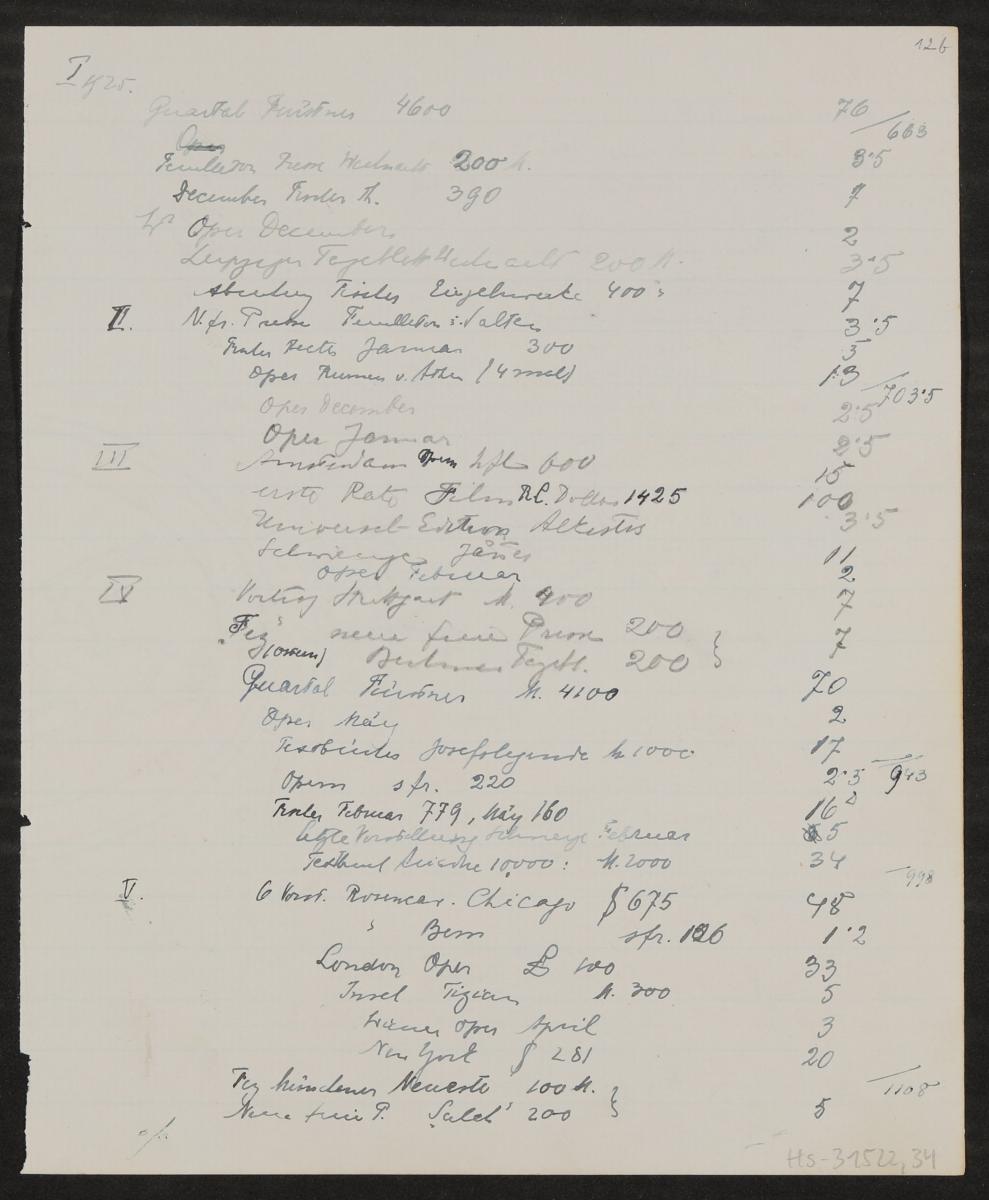 126
I 1925.
Quartal Fürstner 4600 76
663
Oper
Feuilleton Presse Weihnacht 200 M. 3·5
December Fischer Th. 390 7
Oper December 2
Leipziger Tageblatt Weihnacht 200 M. 3·5
Fischer Einzelwerke 400 7
II. N. fr. Presse Feuilleton 3·5
Januar 300 5
Oper Ruinen v. Athen (4 mal) 13
703·5
Oper December 2·5
Oper Januar 2·5
III Amsterdam hfl 600 15
erste Rate Film Dollar 1425 100
Universal-Edition Alkestis 3·5
Schwierige 11
Oper Februar 2
IV Vortrag Stuttgart M. 400 7
„Fez“ neue freie Presse 200
Berliner Tagebl. 200 7
Quartal Fürstner M. 4100 70
Oper März 2
Textbücher Josefslegende M 1000 17
Opern sfr. 220 2·5 943
Fischer Februar 779, März 160 16
letzte Vorstellung Schwierige Februar 5
10,000: M. 2000 34
998
V. 6 Vorst. Rosencav. Chicago $ 675 48
" Bern sfr. 1·2
London Oper £ 100 33
Insel Tizian M. 300 5
Wiener Oper April 3
New York $ 281 20
Fez Münchener Neueste 100 M.
1108
Neue freie P. „Saleh“ 200 5
Hs-31522,34